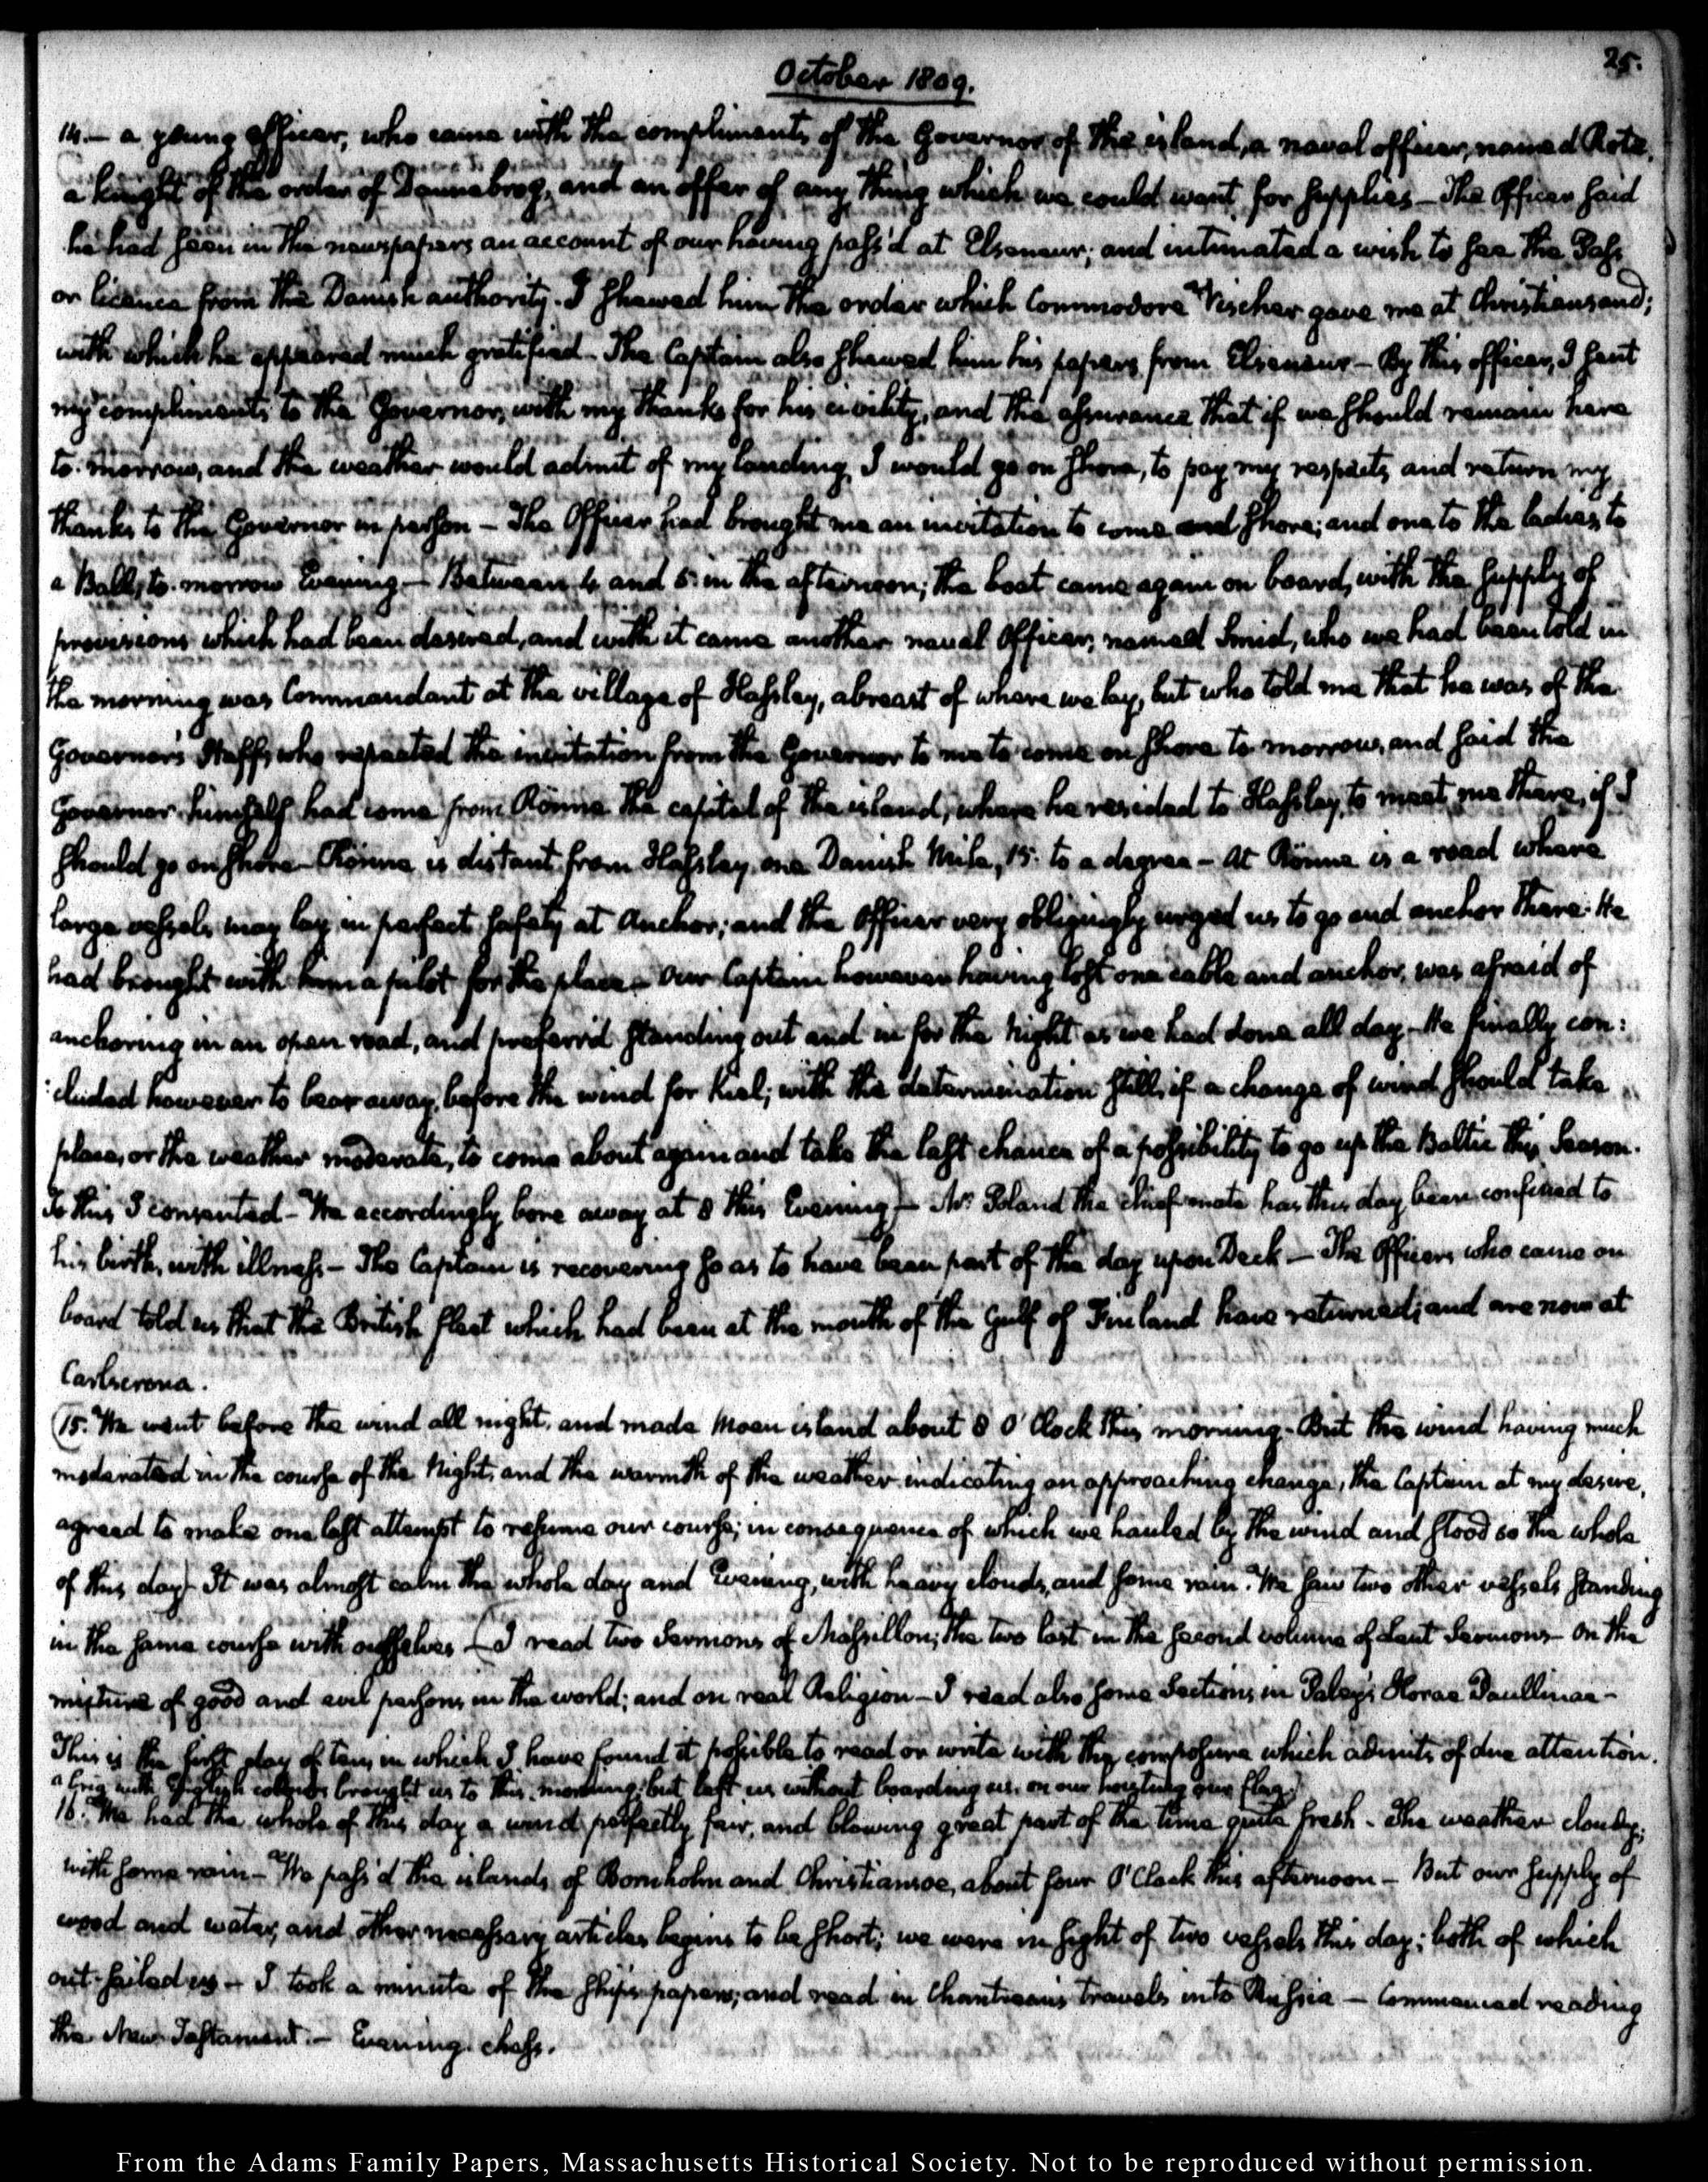 October 1809.
25.
14.— a young officer, who came with the compliments of the Governor of the island, a naval officer, named Rote,
a knight of the order of Dannebrog, and an offer of any thing which we could want, for supplies— The Officer said
he had seen in the newspapers an account of our having pass'd at Elseneur; and intimated a wish to see the Pass
or licence from the Danish authority. I shewed him the order which Commodore Vischer gave me at Christiansand;
with which he appeared much gratified— The Captain also shewed him his papers from Elseneur— By this officer, I sent
my compliments to the Governor, with my thanks for his civility, and the assurance that if we should remain here
to-morrow, and the weather would admit of my landing, I would go on shore, to pay my respects, and return my
thanks to the Governor in person— The Officer had brought me an invitation to come and shore; and one to the ladies, to
a Ball, to-morrow Evening— Between 4 and 5 in the afternoon; the boat came again on board, with the supply of
provisions which had been desired, and with it came another naval Officer, named Smid, who we had been told in
the morning was Commandant at the village of Hassley, abreast of where we lay, but who told me that he was of the
Governor's Staff, who repeated the invitation from the Governor to me to come on shore to-morrow, and said the
Governor himself had come from Rönne the capital of the island, where he resided to Hassley, to meet me there, if I
should go on shore— Rönne is distant from Hassley one Danish Mile, 15. to a degree— At Rönne is a road where
large vessels may lay in perfect safety at Anchor; and the Officer very obligingly urged us to go and anchor there. He
had brought with him a pilot for the place— Our Captain however having lost one cable and anchor, was afraid of
anchoring in an open road, and preferr'd standing out and in for the Night as we had done all day— He finally con:
:cluded however to bear away, before the wind for Kiel; with the determination still, if a change of wind should take
place, or the weather moderate, to come about again and take the last chance of a possibility to go up the Baltic this Season.
To this I consented— We accordingly bore away at 8 this Evening)— Mr. Poland the chief mate has this day been confined to
his birth, with illness— The Captain is recovering so as to have been part of the day upon Deck— The Officers who came on
board told us that the British fleet which had been at the mouth of the Gulf of Finland have returned; and are now at
Carlscrona.
(15. We went before the wind all night, and made Moen island about 8 O'Clock this morning— But the wind having much
moderated in the course of the Night, and the warmth of the weather indicating an approaching change, the Captain at my desire,
agreed to make one last attempt to resume our course; in consequence of which we hauled by the wind and stood so the whole
of this day)— It was almost calm the whole day and Evening, with heavy clouds, and some rain. We saw two other vessels standing
in the same course with ourselves— (I read two Sermons of Massillon; the two last in the second volume of Lent Sermons— On the
mixture of good and evil persons in the world; and on real Religion— I read also some Sections in Paley's Horae Paullinae—
This is the first day of ten, in which I have found it possible to read or write with the composure which admits of due attention.
a brig with English colours brought us to this morning; but left us without boarding us, on our hoisting our flag.)
16. We had the whole of this day a wind perfectly fair, and blowing great part of the time quite fresh— The weather cloudy;
with some rain— We pass'd the islands of Bornholm and Christiansoe, about four O'Clock this afternoon— But our supply of
wood and water, and other necessary articles begins to be short; we were in sight of two vessels this day; both of which
out-sailed us— I took a minute of the ship's papers; and read in Chantreau's travels into Russia— Commenced reading
the New-Testament.— Evening. chess.
From the Adams Family Papers, Massachusetts Historical Society. Not to be reproduced without permission.